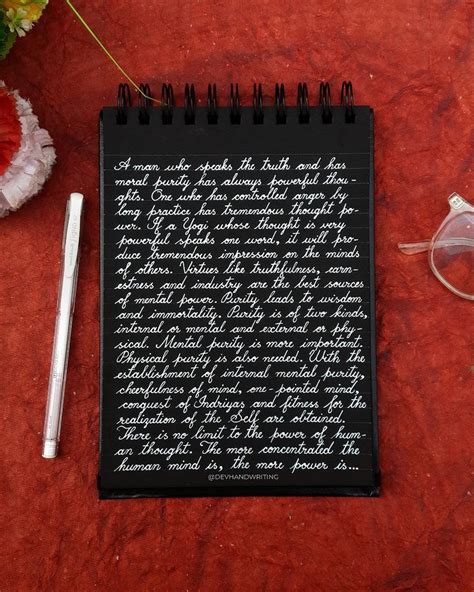 A man who speaks the truth and has
moral purity has always powerful thou-
ghts. One who has controlled anger by
long practice has tremendous thought po-
wer. If a Yogi whose thought is very
powerful speaks one word, it will pro-
duce tremendous impression on the minds
of others. Virtues like truthfulness, earn-
estness and industry are the best sources
of mental power. Purity leads to wisdom
and immortality. Purity is of two kinds,
internal or mental and external or phy-
sical. Mental purity is more important.
Physical purity is also needed. With the
establishment of internal mental purity,
cheerfulness of mind, one-pointed mind,
conquest of Indriyas and fitness for the
realization of the Self are obtained.
There is no limit to the power of hum-
an thought. The more concentrated the
human mind is, the more power is...
@DEVHANDWRITING